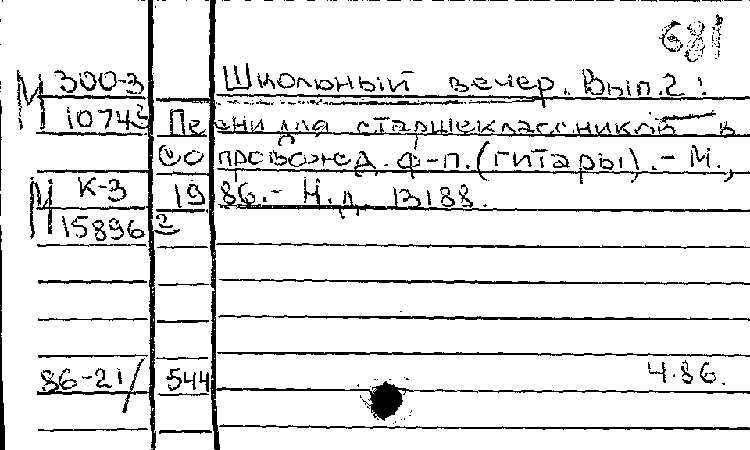 681
М 300-3 Школьный вечер. Вып. 2:
1074² Песни для старшеклассников в
сопровожд. ф-п. (гитары). - М.,
М К-3 1986. - Н.д. 13188.
15896²
86-21/544 4.86.